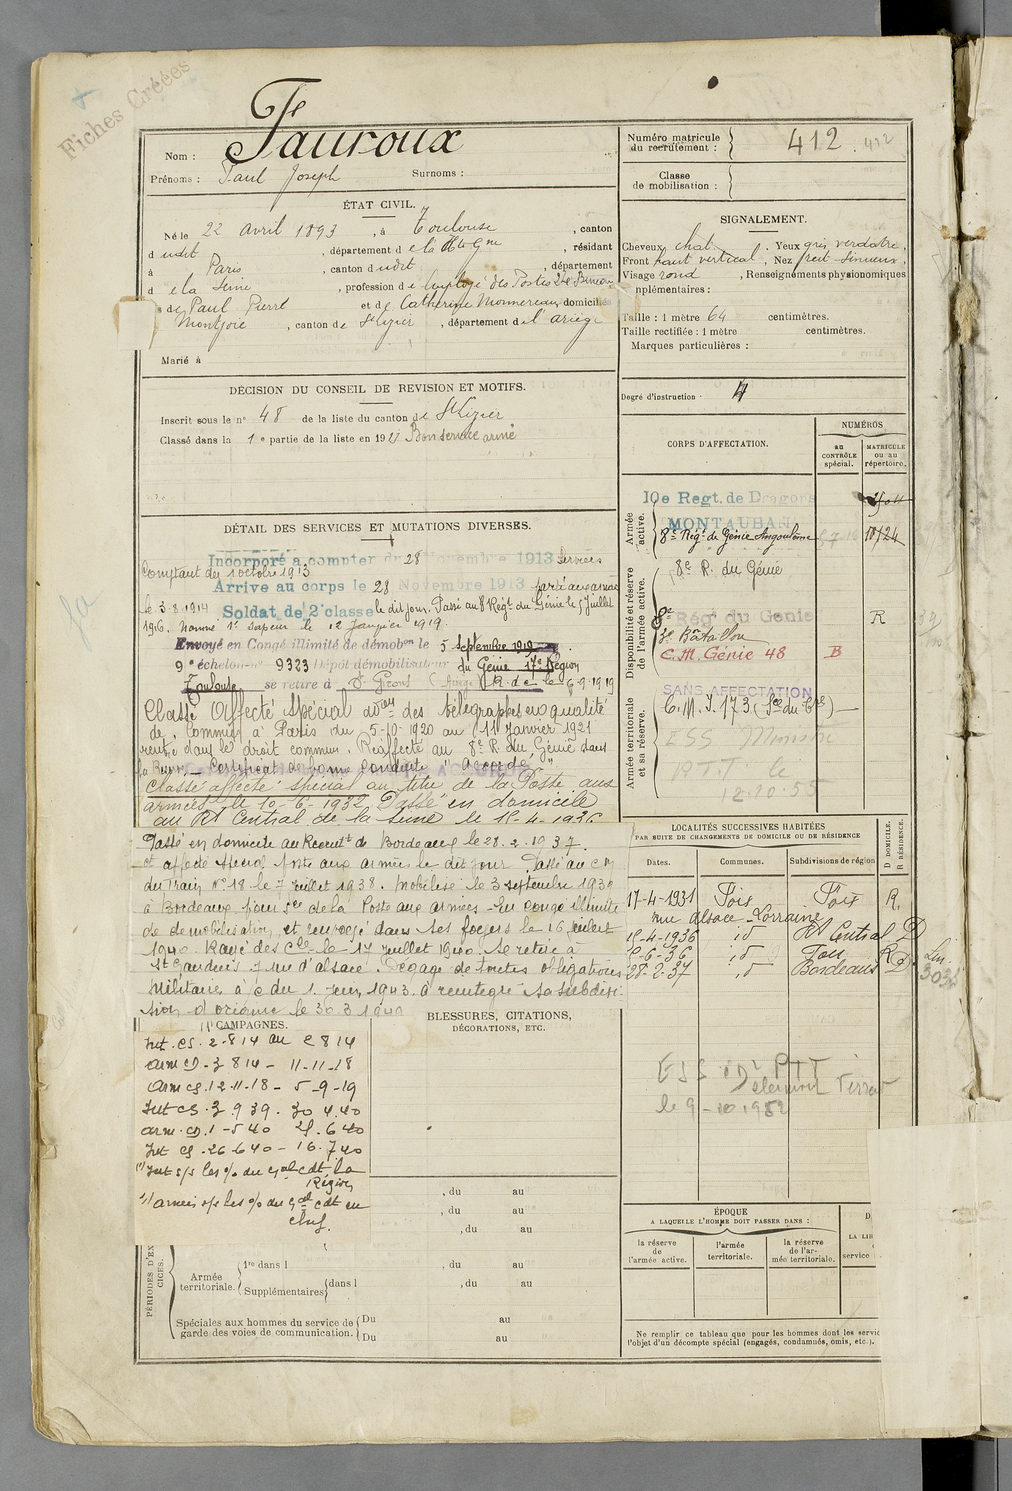 Fiches Créées
Nom : Fauroux
Prénoms : Paul Joseph Surnoms :
Numéro matricule du recrutement : 412 . 412
Classe de mobilisation :
ÉTAT CIVIL.
Né le 22 avril 1893, à Toulouse, canton
dudit, département de la Hte Gne, résidant
à Paris, canton dudit, département
de la Seine, profession de Employé des Postes
de Paul Pierre et de Catherine Monnereau domiciliés
Montjoie, canton de St Lizier, département de l'ariège
Marié à
SIGNALEMENT.
Cheveux chat. Yeux gris verdatre,
Front haut vertical, Nez rect. sinueux,
Visage rond, Renseignements physionomiques
mplémentaires :
Taille : 1 mètre 64 centimètres.
Taille rectifiée : 1 mètre centimètres.
Marques particulières :
Degré d'instruction : 4
DÉCISION DU CONSEIL DE REVISION ET MOTIFS.
Inscrit sous le n° 48 de la liste du canton de St Lizier
Classé dans la 1e partie de la liste en 19 Bon service armé
DÉTAIL DES SERVICES ET MUTATIONS DIVERSES.
Incorporé a compter du 28 Novembre 1913 services
Comptant du 1 octobre 1913
Arrivé au corps le 28 Novembre 1913 parti aux armées
le 3.8.1914 Soldat de 2e classe le dit jour. Passé au 8 Régt du Génie le 5 Juillet
1916. Nommé 1er Sapeur le 12 Janvier 1919.
Envoyé en Congé illimité de démobon le 5 Septembre 1919
9e échelon n° 9323 Dépôt démobilisateur du Génie 17e Région
Toulouse se retire à St Girons (Ariège) R.de le 6.9.1919
Classé Affecté Spécial aon des télégraphes en qualité
de Commis à Paris du 5-10-1920 au 11 Janvier 1921
rentré dans le droit commun. Réaffecté au 8e R. du Génie dans
la Réserve Certificat de bonne conduite "Accordé"
Classé affecté spécial au titre de la Poste aux
armées le 10-6-1932 Passé en domicile
au Rt Central de la Seine le 15-4-1936
Passé en domicile au Recrutt de Bordeaux le 28.2.1937.
et affecté spécial poste aux armées le dit jour Passé au C.M
du Train N° 18 le 7 Juillet 1938. Mobilisé le 3 septembre 1939
à Bordeaux pour Sce de la Poste aux armées. En congé illimité
de démobilisation et renvoyé dans ses foyers le 16 juillet
1940. Rayé des Cles le 17 juillet 1940. Se retire à
St Gaudens 7 rue d'alsace. Dégagé de toutes obligations
Militaires à c du 1. Juin 1943. a réintégré sa subdivi-
sion d'origine le 30.3.1940
CORPS D'AFFECTATION.
NUMÉROS
au CONTRÔLE spécial. MATRICULE ou au répertoire.
Armée active.
10e Regt. de Dragons
MONTAUBAN
8e Régt de Génie Angoulême
Disponibilité et réserve de l'armée active.
8e R. du Génie
8e Régt du Genie R
3e Bataillon
C.M. Génie 48 B
Armée territoriale et sa réserve.
SANS AFFECTATION
LOCALITÉS SUCCESSIVES HABITÉES
PAR SUITE DE CHANGEMENTS DE DOMICILE OU DE RÉSIDENCE
D DOMICILE. R RÉSIDENCE.
Dates. Communes. Subdivisions de région
17-4-1931 Foix Foix R.
rue Alsace-Lorraine
15-4-1936 id Rt Central D
5-6-36 id Foix R
28-2-37 id Bordeaux D
ESS PTT
le 9-10.1952
CAMPAGNES.
Int. CS. 2-8 14 au 2 8 14
arm CD. 3 8 14 - 11-11-18
arm CS. 12-11-18 - 5-9-19
Int CS. 3 9 39. 30 4.40
arm. CD. 1-5 40 25.6 40
Int CS. 26-6 40 - 16.7 40
(1) Int s/s les % du Gal Cdt la Région
armées s/s les % du Gal Cdt en chef.
BLESSURES, CITATIONS,
DÉCORATIONS, ETC.
, du au
, du au
, du au
PÉRIODES D'EX CICES.
Armée territoriale. 1re dans l , du au
Supplémentaires dans l , du au
Spéciales aux hommes du service de garde des voies de communication. Du au
Du au
ÉPOQUE
A LAQUELLE L'HOMME DOIT PASSER DANS :
la réserve de l'armée active. l'armée territoriale. la réserve de l'armée territoriale.
Ne remplir ce tableau que pour les hommes dont les servic
l'objet d'un décompte spécial (engagés, condamnés, omis, etc.).